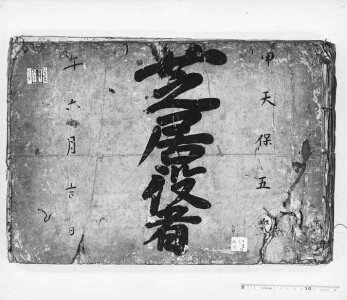 天保五
芝居役者
午六月吉日